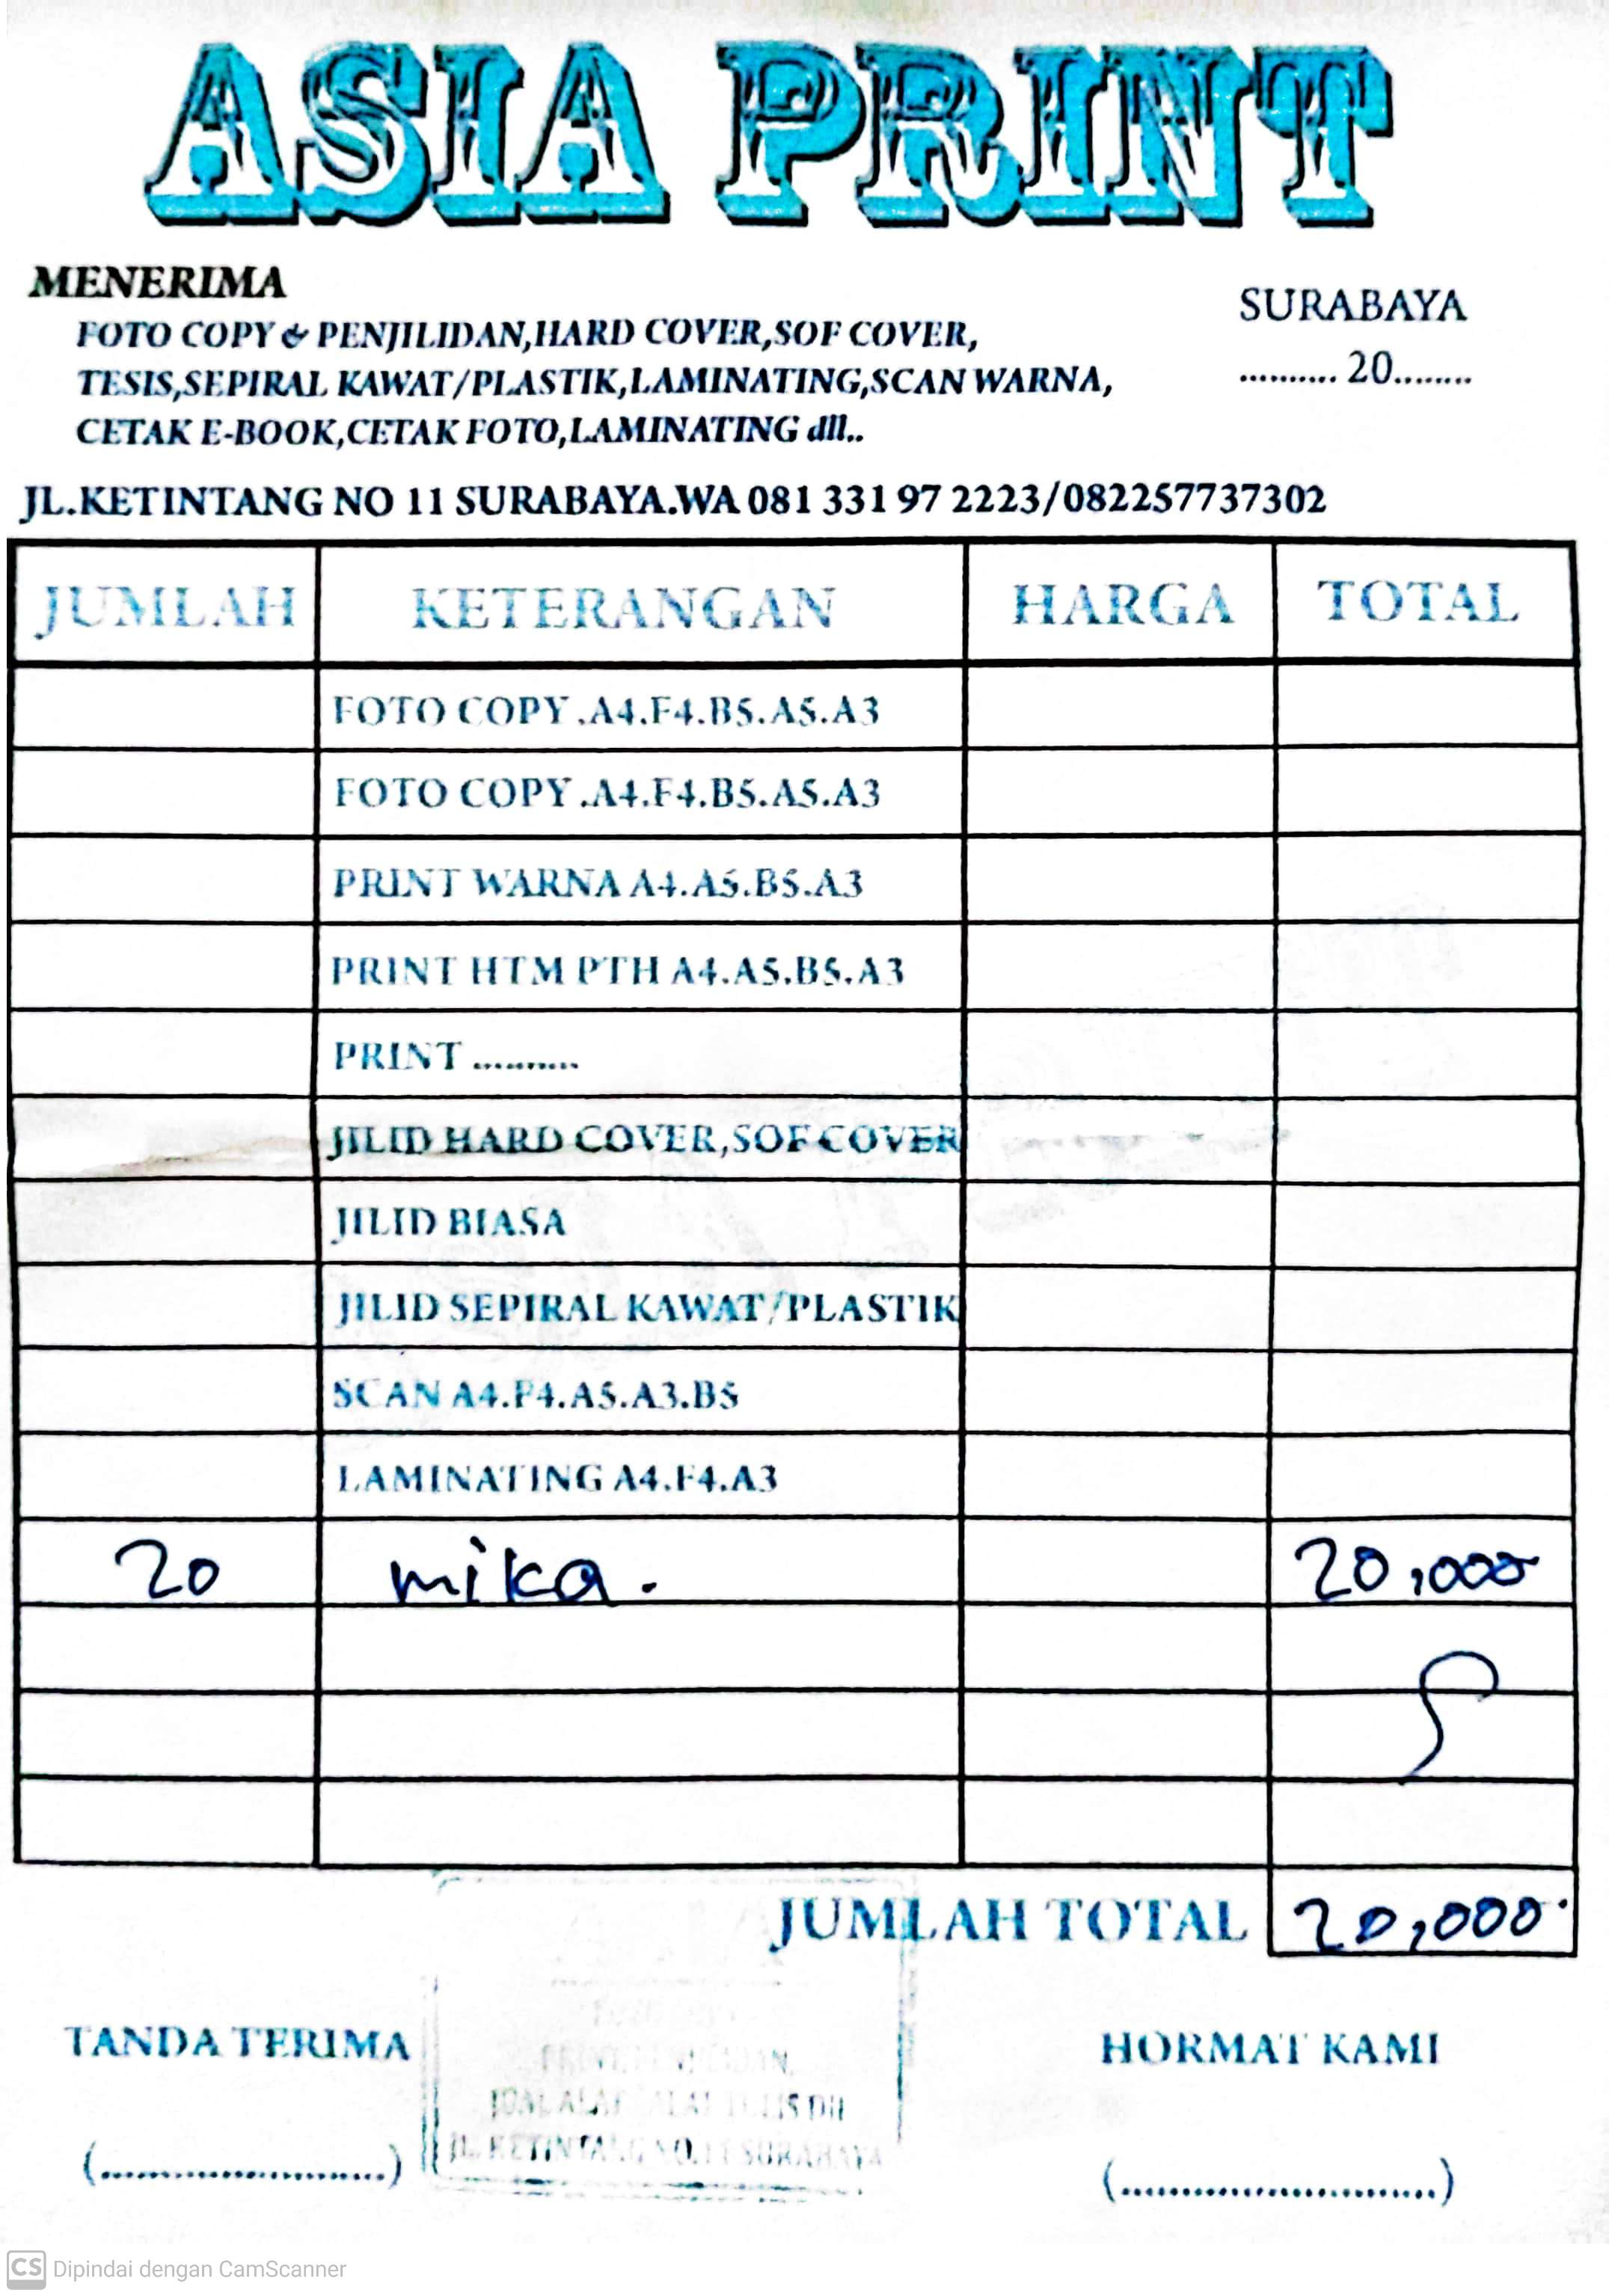 ASIA PRINT
MENERIMA
FOTO COPY & PENJILIDAN,HARD COVER,SOF COVER,
TESIS,SEPIRAL KAWAT/PLASTIK,LAMINATING,SCAN WARNA,
CETAK E-BOOK,CETAK FOTO,LAMINATING dll..
SURABAYA
.......... 20........
JL.KETINTANG NO 11 SURABAYA.WA 081 331 97 2223/082257737302
JUMLAH KETERANGAN HARGA TOTAL
FOTO COPY .A4.F4.B5.A5.A3
FOTO COPY .A4.F4.B5.A5.A3
PRINT WARNA A4.A5.B5.A3
PRINT HTM PTH A4.A5.B5.A3
PRINT ..........
JILID HARD COVER,SOF COVER
JILID BIASA
JILID SEPIRAL KAWAT/PLASTIK
SCAN A4.F4.A5.A3.B5
LAMINATING A4.F4.A3
20 mika. 20,000
JUMLAH TOTAL 20,000
TANDA TERIMA HORMAT KAMI
JL. KETINTANG NO.11 SURABAYA
(........................) (...........................)
CS Dipindai dengan CamScanner